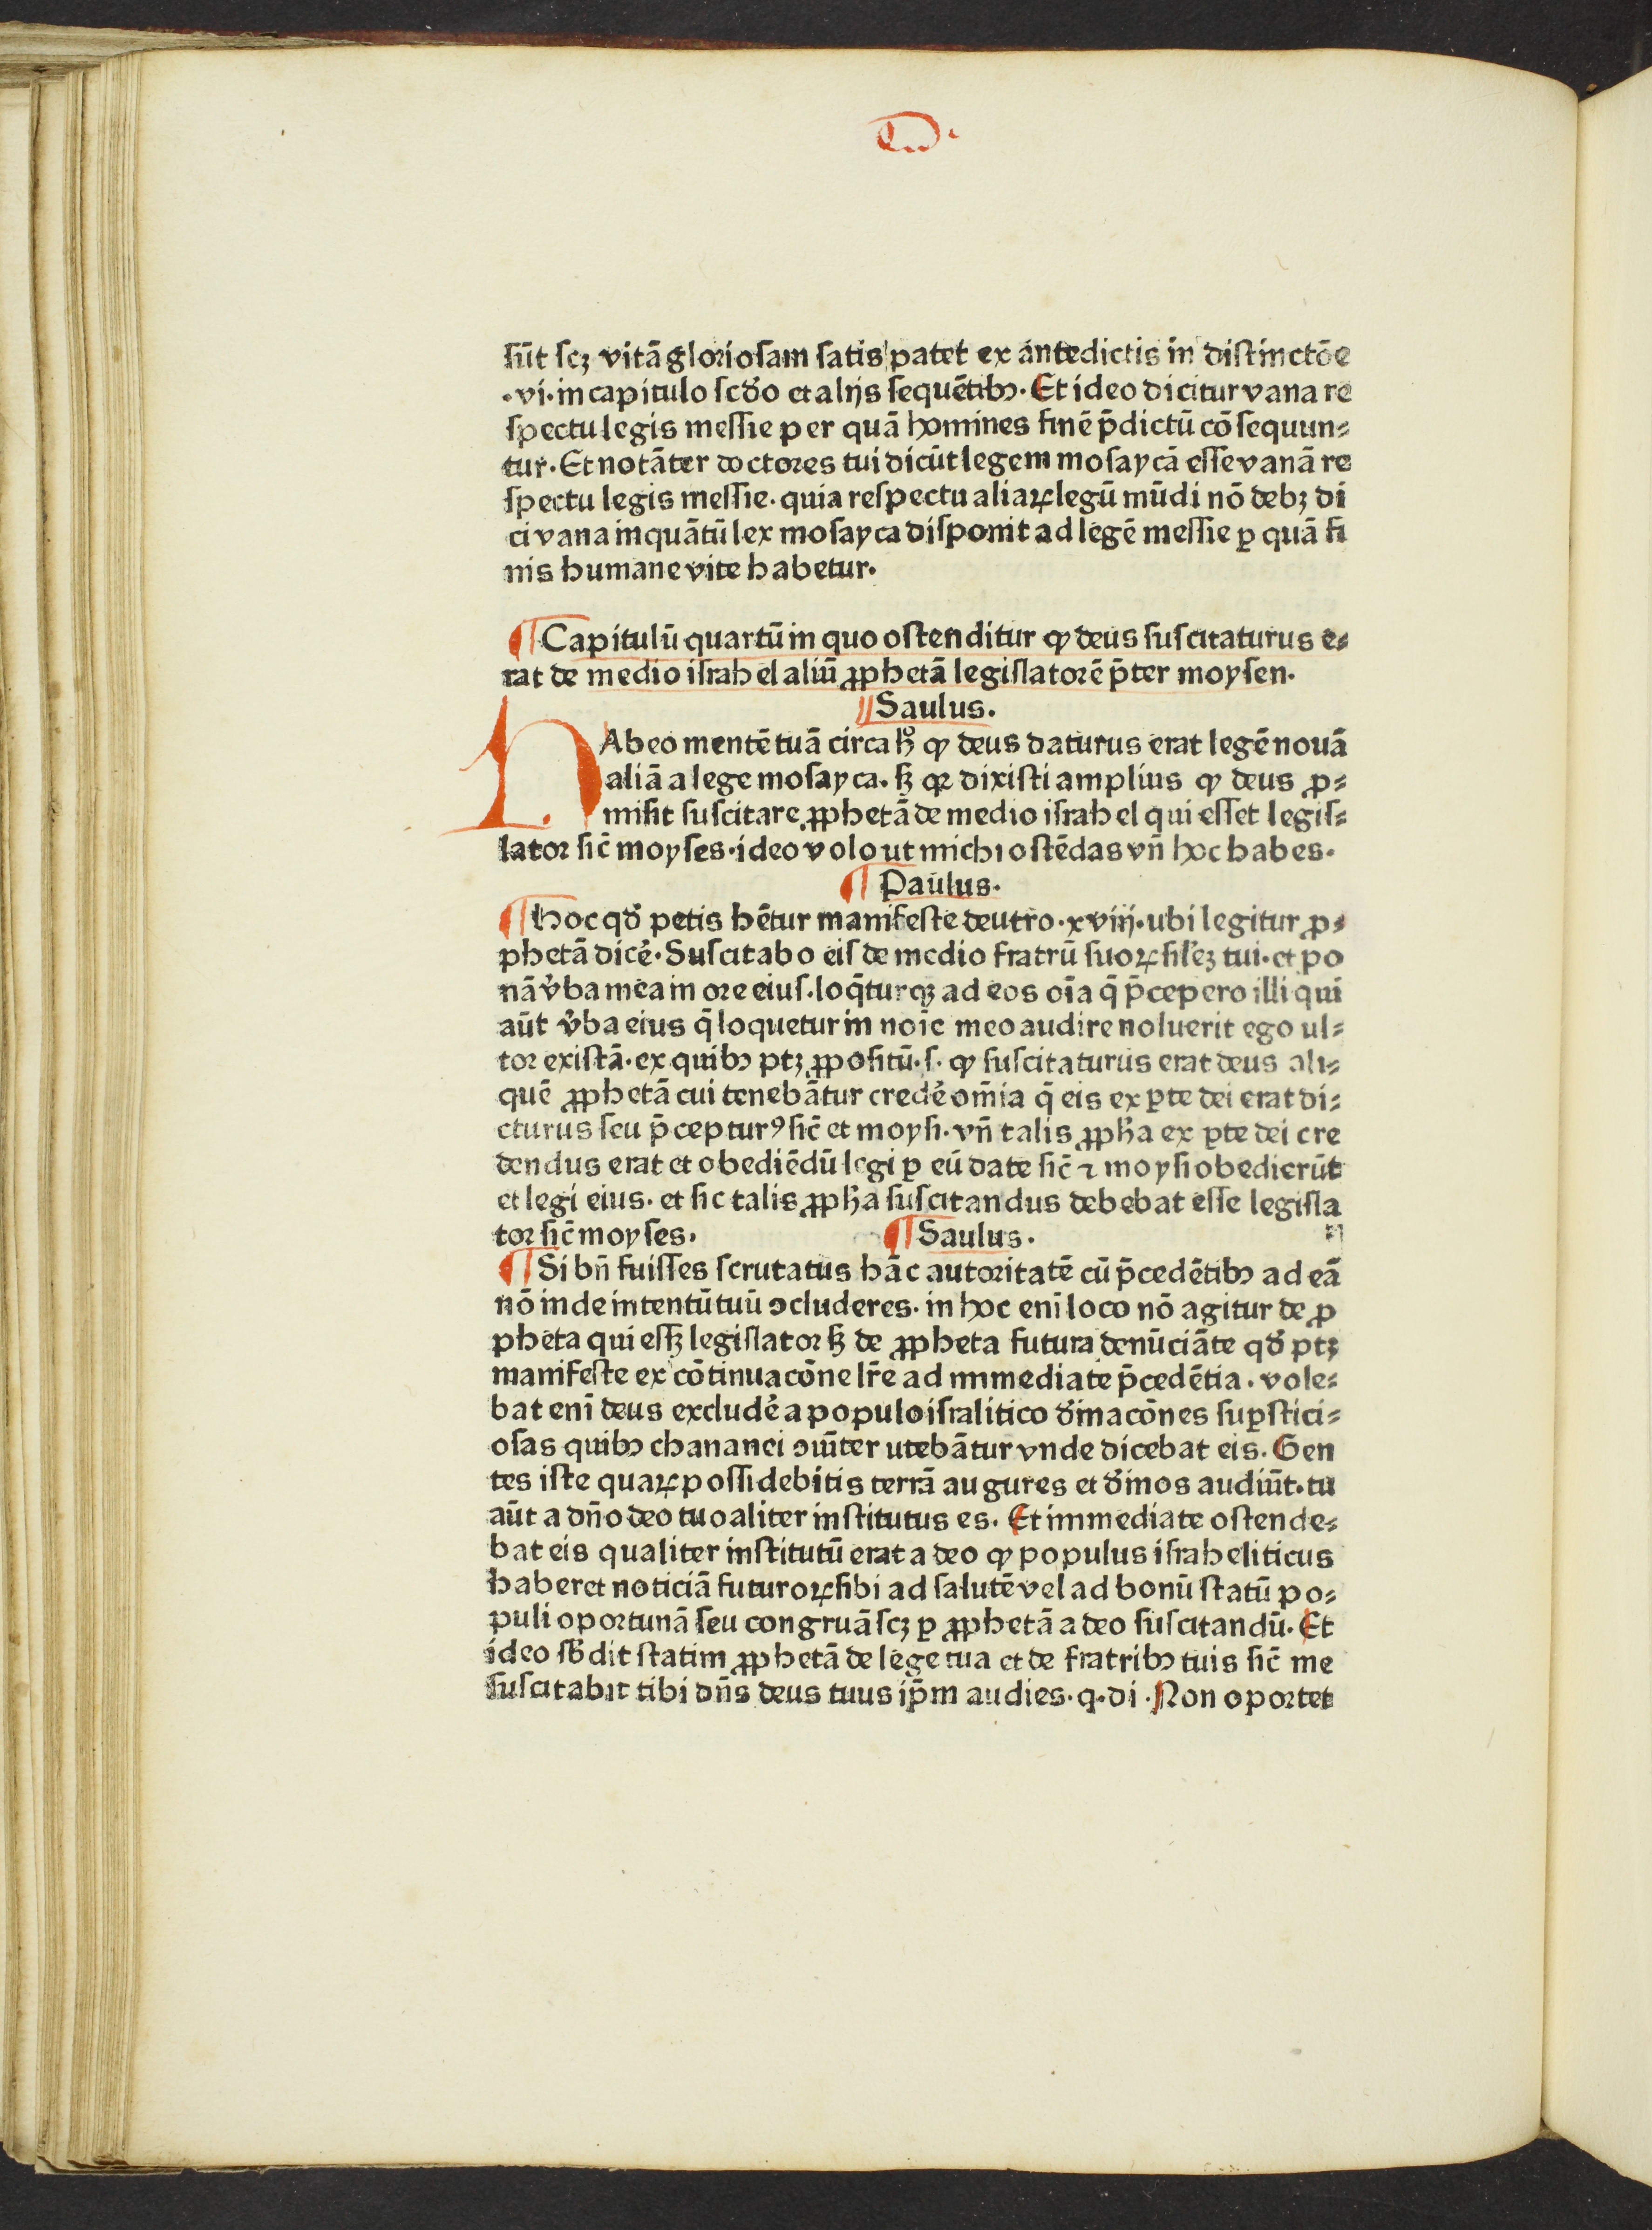 sūt scꝫ vitā gloriosam satis patet ex antedictis in distinctōe
.vi. in capitulo scḋo et alijs sequētibꝰ. Et ideo dicitur vana re
spectu legis messie per quā homines finē p̄dictū cōsequun⸗
tur. Et notāter doctores tui dicūt legem mosaycā esse vanā re
spectu legis messie. quia respectu aliaꝝ legū mūdi nō debꝫ di
ci vana inquātū lex mosayca disponit ad legē messie ꝑ quā fi
nis humane vite habetur.
¶ Capitulū quartū in quo ostenditur ꝙ deus suscitaturus e⸗
rat de medio israhel aliū ꝓphetā legislatorē p̄ter moysen.
¶ Saulus.
HAbeo mentē tuā circa hͦ ꝙ deus daturus erat legē nouā
aliā a lege mosayca. sꝫ qꝛ dixisti amplius ꝙ deus ꝓ⸗
misit suscitare ꝓphetā de medio israhel qui esset legis⸗
lator sic̄ moyses. ideo volo ut michi ostēdas vn̄ hoc habes.
¶ Paulus.
¶ Hoc qḋ petis hētur manifeste deutro. xviij. ubi legitur ꝓ⸗
phetā dicē. Suscitabo eis de medio fratrū suoꝝ silēꝫ tui. et po
nā v̓ba mea in ore eius. loq̄turqꝫ ad eos oīa q̄ p̄cepero illi qui
aūt v̓ba eius q̄ loquetur in noīe meo audire noluerit ego ul⸗
tor existā. ex quibꝰ ptꝫ ꝓpositū. s. ꝙ suscitaturus erat deus ali⸗
quē ꝓphetā cui tenebātur credē om̄ia q̄ eis ex ꝑte dei erat di⸗
cturus seu p̄cepturꝰ sic̄ et moysi. vn̄ talis ꝓpħa ex ꝑte dei cre
dendus erat et obediēdū legi ꝑ eū date sic̄ ⁊ moysi obedierūt
et legi eius. et sic talis ꝓpħa suscitandus debebat esse legisla
tor sic̄ moyses. ¶ Saulus.
¶ Si bn̄ fuisses scrutatus hāc autoritatē cū p̄cedētibꝰ ad eā
nō inde intentū tuū ɔcluderes. in hoc enī loco nō agitur de ꝓ
pheta qui essꝫ legislator sꝫ de ꝓpheta futura denūciāte qḋ ptꝫ
manifeste ex cōtinuacōne lr̄e ad immediate p̄cedētia. vole⸗
bat enī deus excludē a populo isralitico ḋinacōnes suꝑstici⸗
osas quibꝰ chananei ɔiūter utebātur vnde dicebat eis. Gen
tes iste quaꝝ possidebitis terrā augures et ḋinos audiūt. tu
aūt a dn̄o deo tuo aliter institutus es. Et immediate ostende⸗
bat eis qualiter institutū erat a deo ꝙ populus israheliticus
haberet noticiā futuroꝝ sibi ad salutē vel ad bonū statū po⸗
puli oportunā seu congruā scꝫ ꝑ ꝓphetā a deo suscitandū. Et
ideo sb̄dit statim ꝓphetā de lege tua et de fratribꝰ tuis sic̄ me
suscitabit tibi dn̄s deus tuus ip̄m audies. q. di. Non oportet